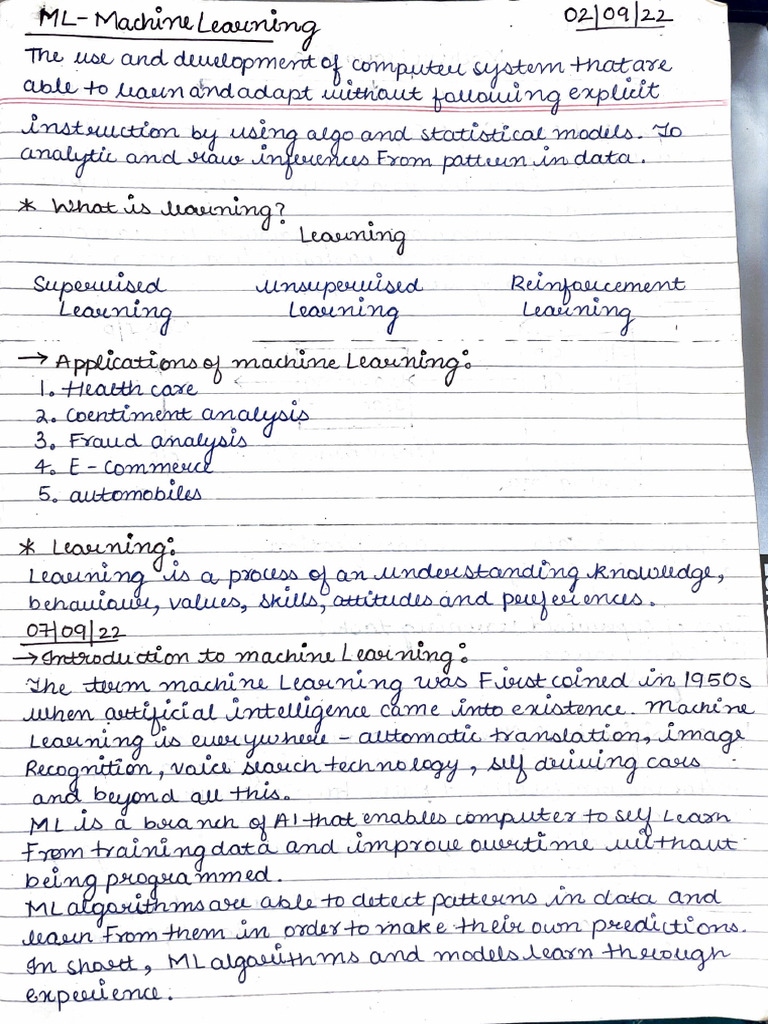 ML- Machine Learning 02/09/22
The use and development of computer system that are
able to learn and adapt without following explicit
instruction by using algo and statistical models. To
analytic and raw inferences From pattern in data.
* What is learning?
Learning
Supervised unsupervised Reinforcement
Learning Learning Learning
→ Applications of machine Learning:
1. Health care
2. Coentiment analysis
3. Fraud analysis
4. E - Commerce
5. automobiles
* Learning:
Learning is a process of an understanding knowledge,
behaviour, values, skills, attitudes and preferences.
07/09/22
→ Introduction to machine Learning:
The term machine Learning was First coined in 1950s
when artificial intelligence came into existence. Machine
Learning is everywhere - automatic translation, image
Recognition, voice search technology, self driving cars
and beyond all this.
ML is a branch of AI that enables computer to self Learn
From training data and improve overtime without
being programmed.
ML algorithms are able to detect patterns in data and
learn From them in order to make their own predictions.
In short, ML algorithms and models learn through
experience.